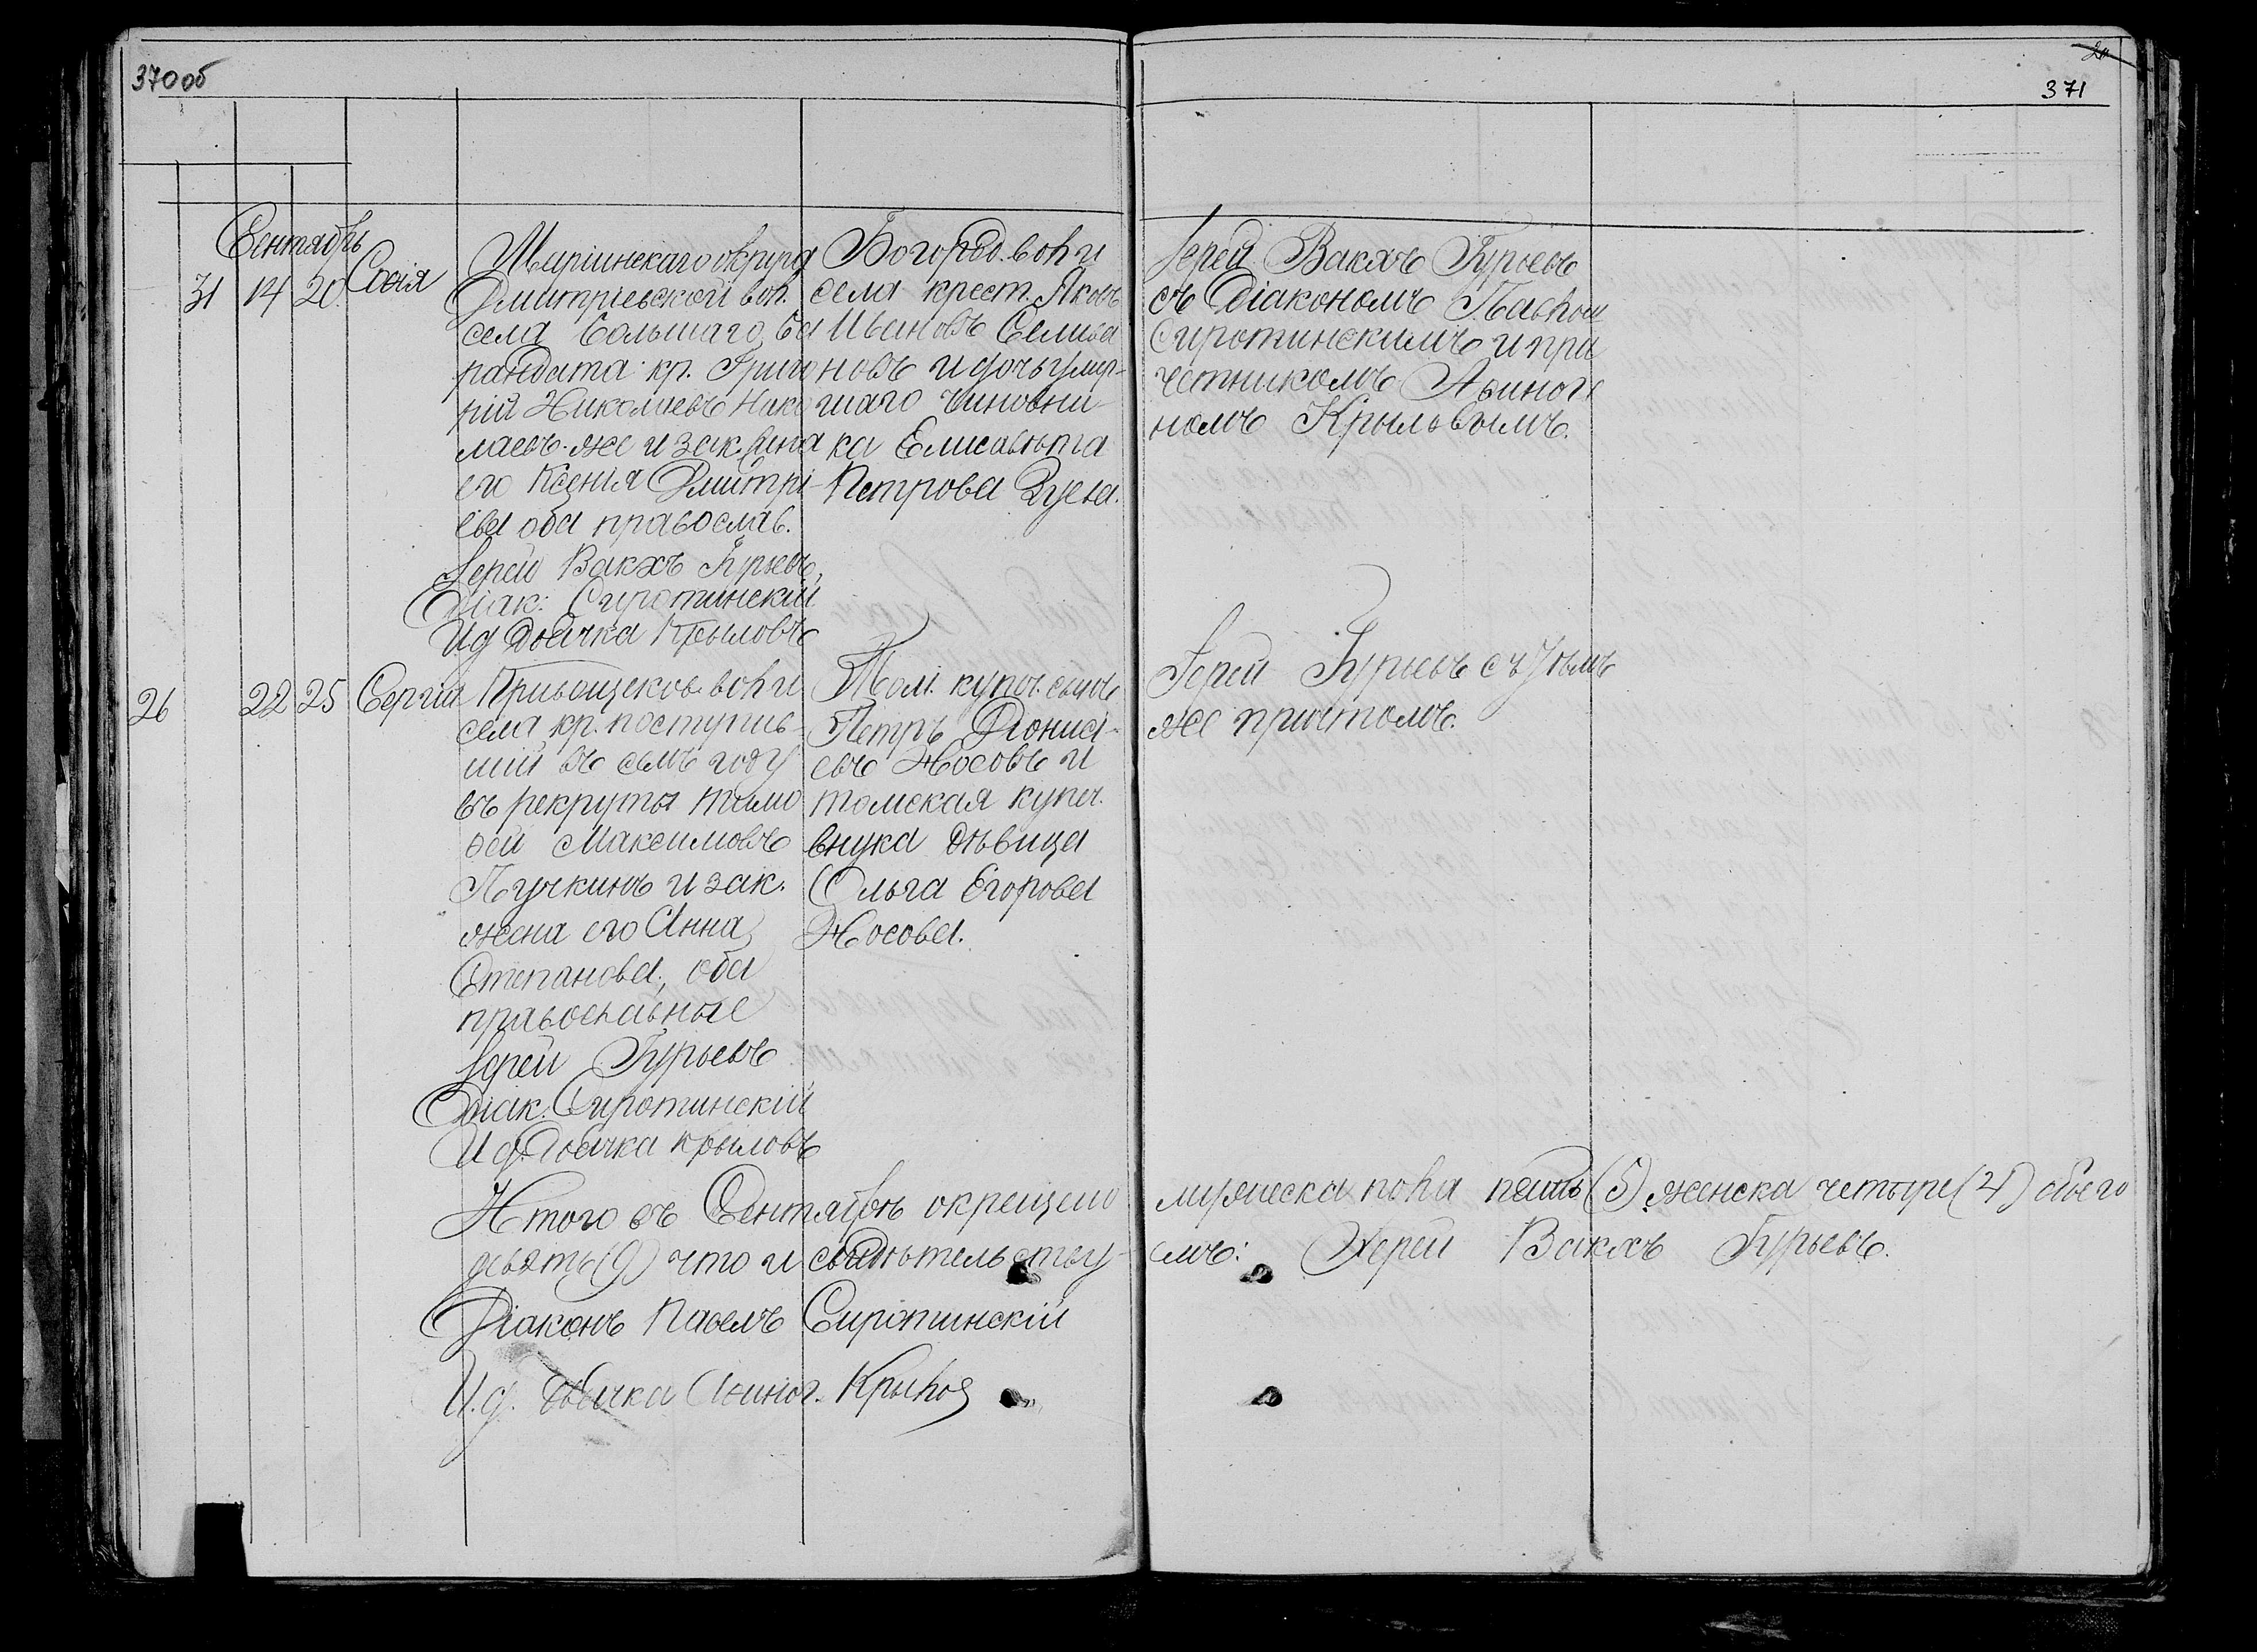 370об
20
371
Сентябрь
31 14 20 Софія
Маріинскаго округа
Дмитріевской вол.
села Большаго Ба
рандата кр. Григо
рій Николаевъ Нико
лаевъ же и зак. жена
его Ксенія Дмитрі-
ева оба православ.
Іерей Вакхъ Гурьевъ,
Діак: Сиротинскій
И д Дьячка Крыловъ
Богород. вол и
села крест. Яковъ
Ивановъ Селива
новъ и дочь умер-
шаго чиновни-
ка Елисавѣта
Петрова Зуева.
Іерей Вакхъ Гурьевъ
съ Діакономъ Павлом
Сиротинскимъ и при
четникомъ Афиноге
номъ Крыловымъ.
26 22 25 Сергій
Кривощеков. вол и
села кр. поступив-
шій въ семъ году
въ рекруты Тимо
фей Максимовъ
Пучкинъ и зак.
жена его Анна
Степанова, оба
православные
Іерей Гурьевъ
Діак. Сиротинскій
И д. Дьячка Крыловъ
Том. купеч. сынъ
Петръ Діонисі-
евъ Носовъ и
томская купеч.
внука дѣвица
Ольга Егорова
Носова.
Іерей Гурьевъ съ тѣмъ
же причтомъ.
Итого въ Сентябрѣ окрещено мужеска пола пять (5) женска четыре (4) обоего
девять (9) что и свидѣтельству-емъ: Іерей Вакхъ Гурьевъ.
Діаконъ Павелъ Сиротинскій
И. д. Дьячка Афиног. Крылов